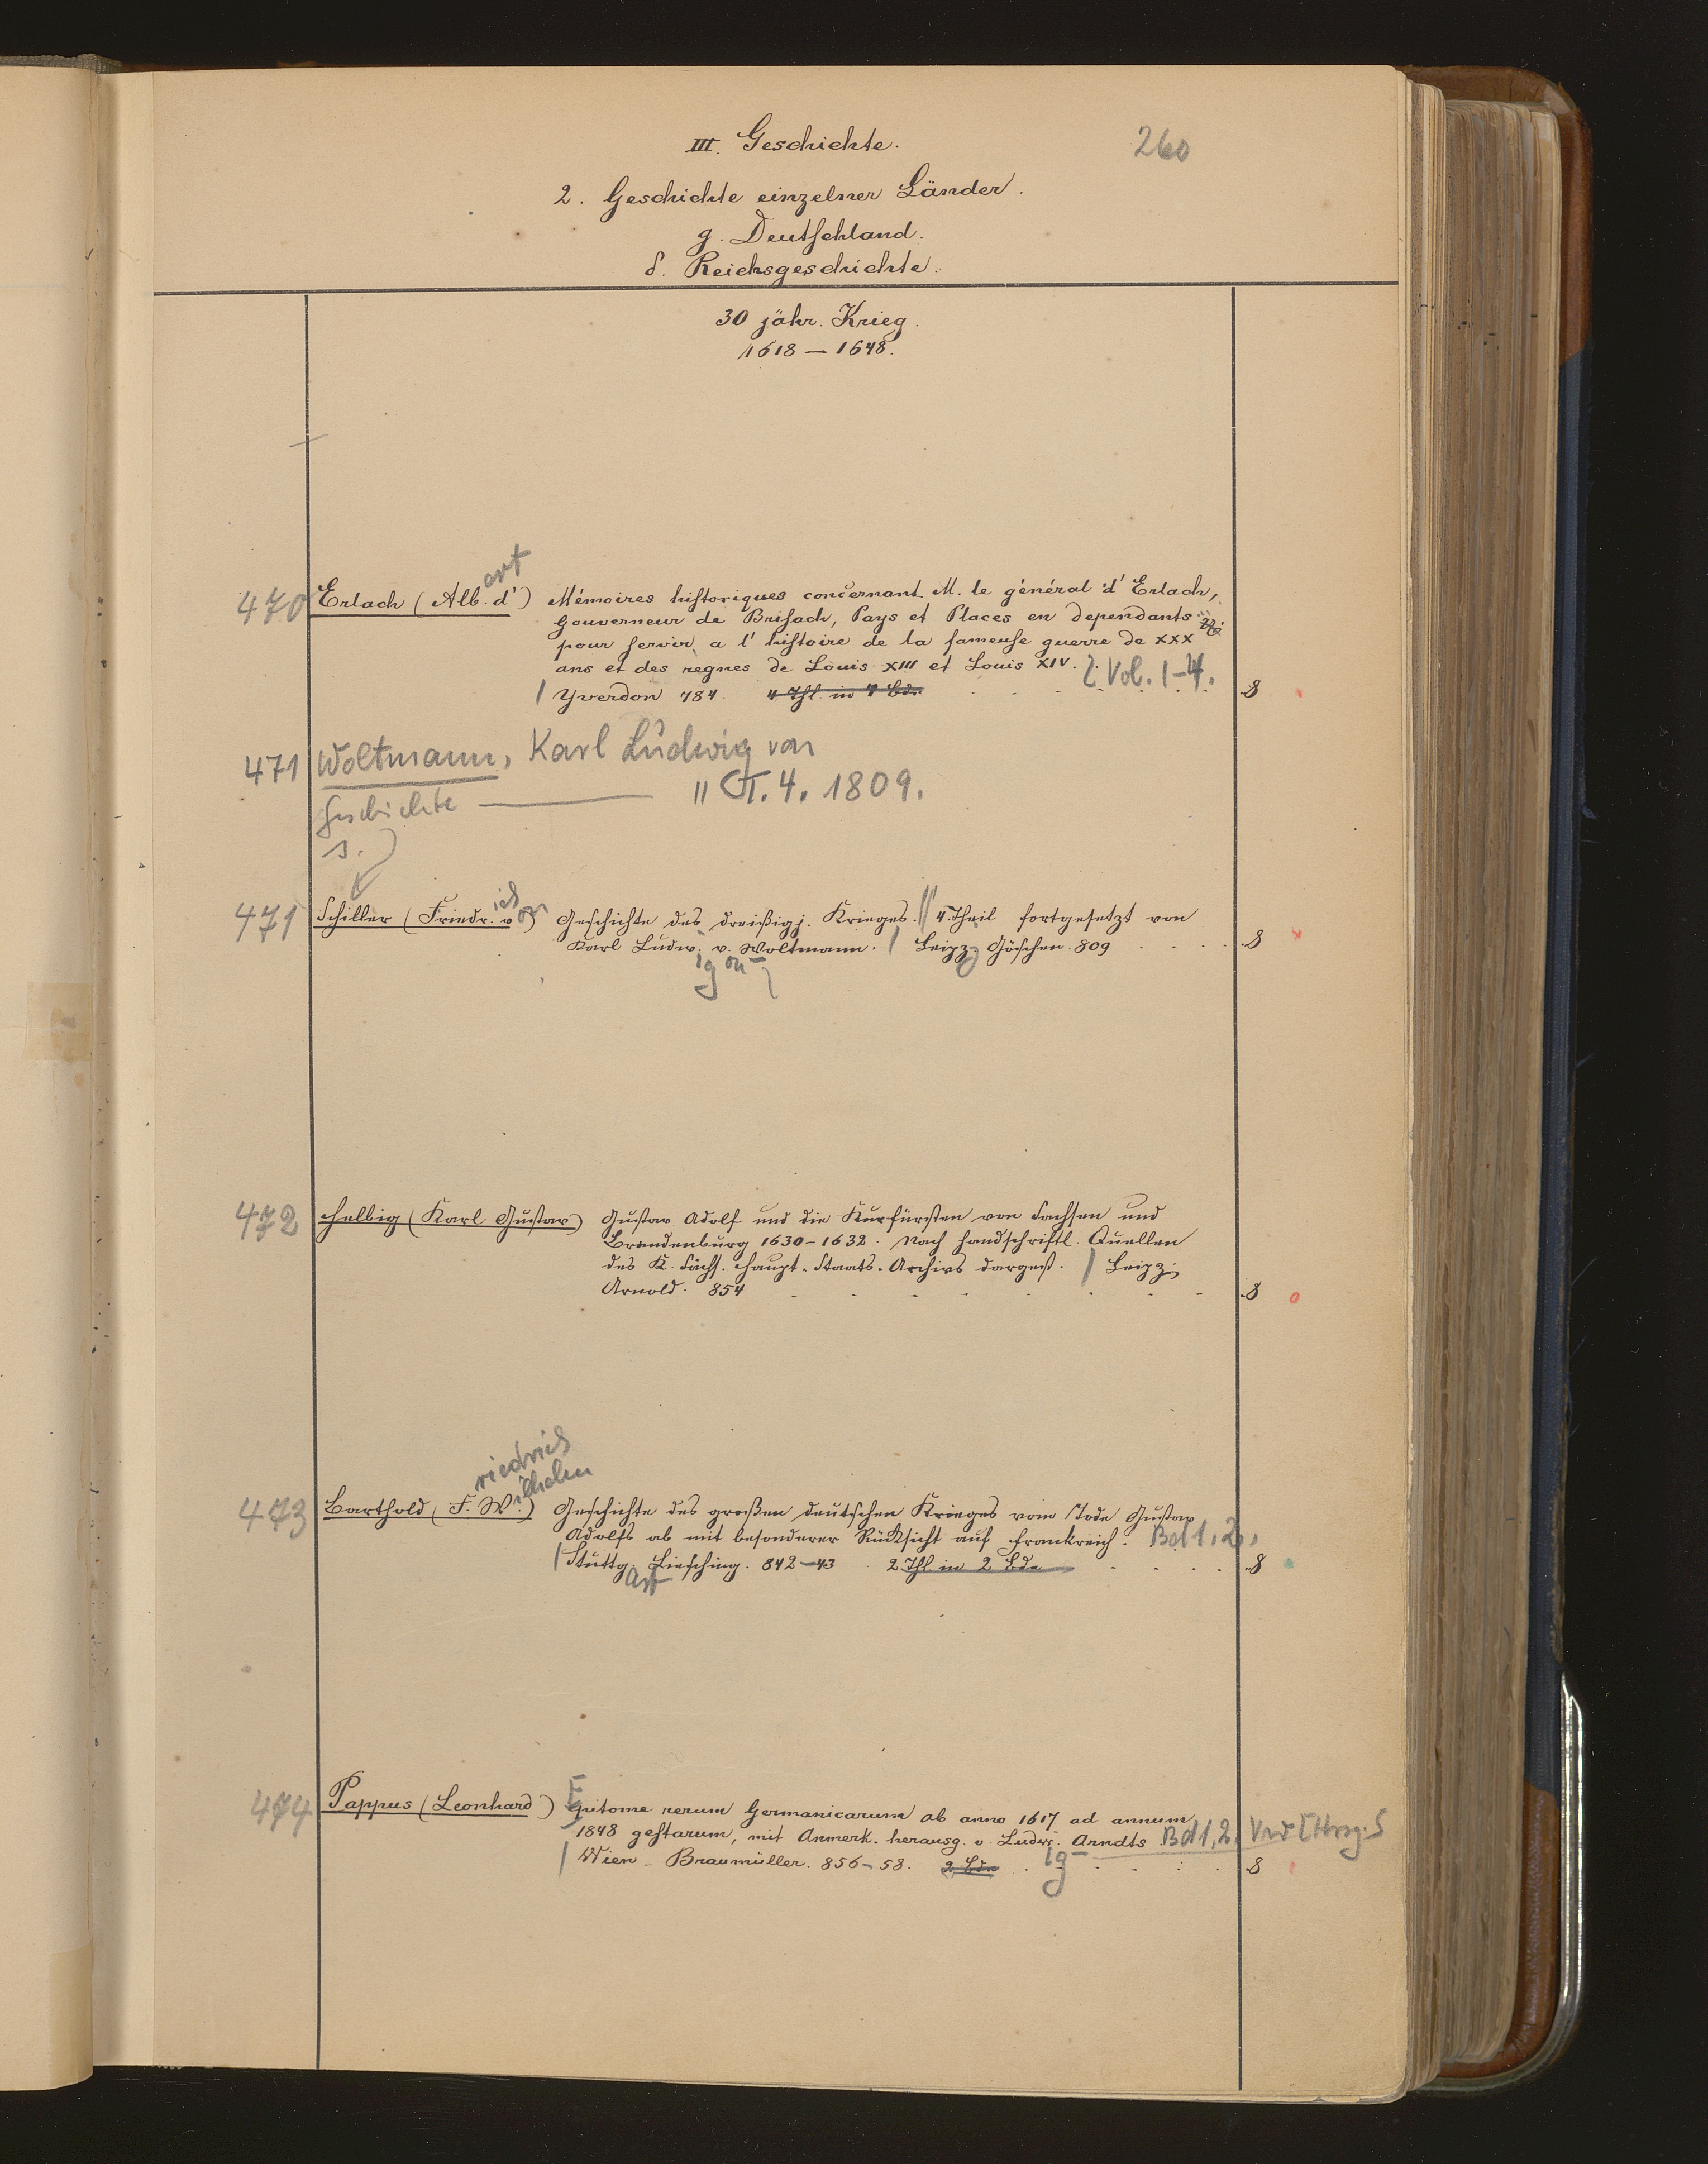 260
III. Geschichte.
2. Geschichte einzelner Länder.
g. Deutschland.
δ. Reichsgeschichte.
30 jähr. Krieg.
1618 — 1648.
ert
470 Erlach (Alb. d') Mémoires historiques concernant M. le général d'Erlach,
Gouverneur de Brisach, Pays et Places en dependants
pour servir a l'histoire de la fameuse guerre de XXX
ans et des regnes de Louis XIII et Louis XIV. Vol. 1-4.
Yverdon 784. 4 Thl. in 4 Bdn. 8
471 Woltmann, Karl Ludwig von
Geschichte — T. 4. 1809.
s.
ich on
471 Schiller (Friedr. v.) Geschichte des dreißigj. Krieges. 4. Theil fortgesetzt von
Karl Ludw. v. Woltmann. Leipz. Göschen. 809 8
ig on
472 Helbig (Karl Gustav) Gustav Adolf und die Kurfürsten von Sachsen und
Brandenburg 1630–1632. Nach handschriftl. Quellen
des K. Sächs. Haupt-Staats-Archivs dargest. Leipz.
Arnold. 854 8
riedrich
ilhelm
473 Barthold (F. W.) Geschichte des großen deutschen Krieges vom Tode Gustav
Adolfs ab mit besonderer Rücksicht auf Frankreich. Bd 1.2.
Stuttg. Liesching. 842–43 2 Thl. in 2 Bdn 8
art
474 Pappus (Leonhard) Epitome rerum Germanicarum ab anno 1617 ad annum
1648 gestarum, mit Anmerk. herausg. v. Ludw. Arndts Bd 1.2. Vrw [Hrsg.
Wien. Braumüller. 856–58. 2 Bde 8
ig